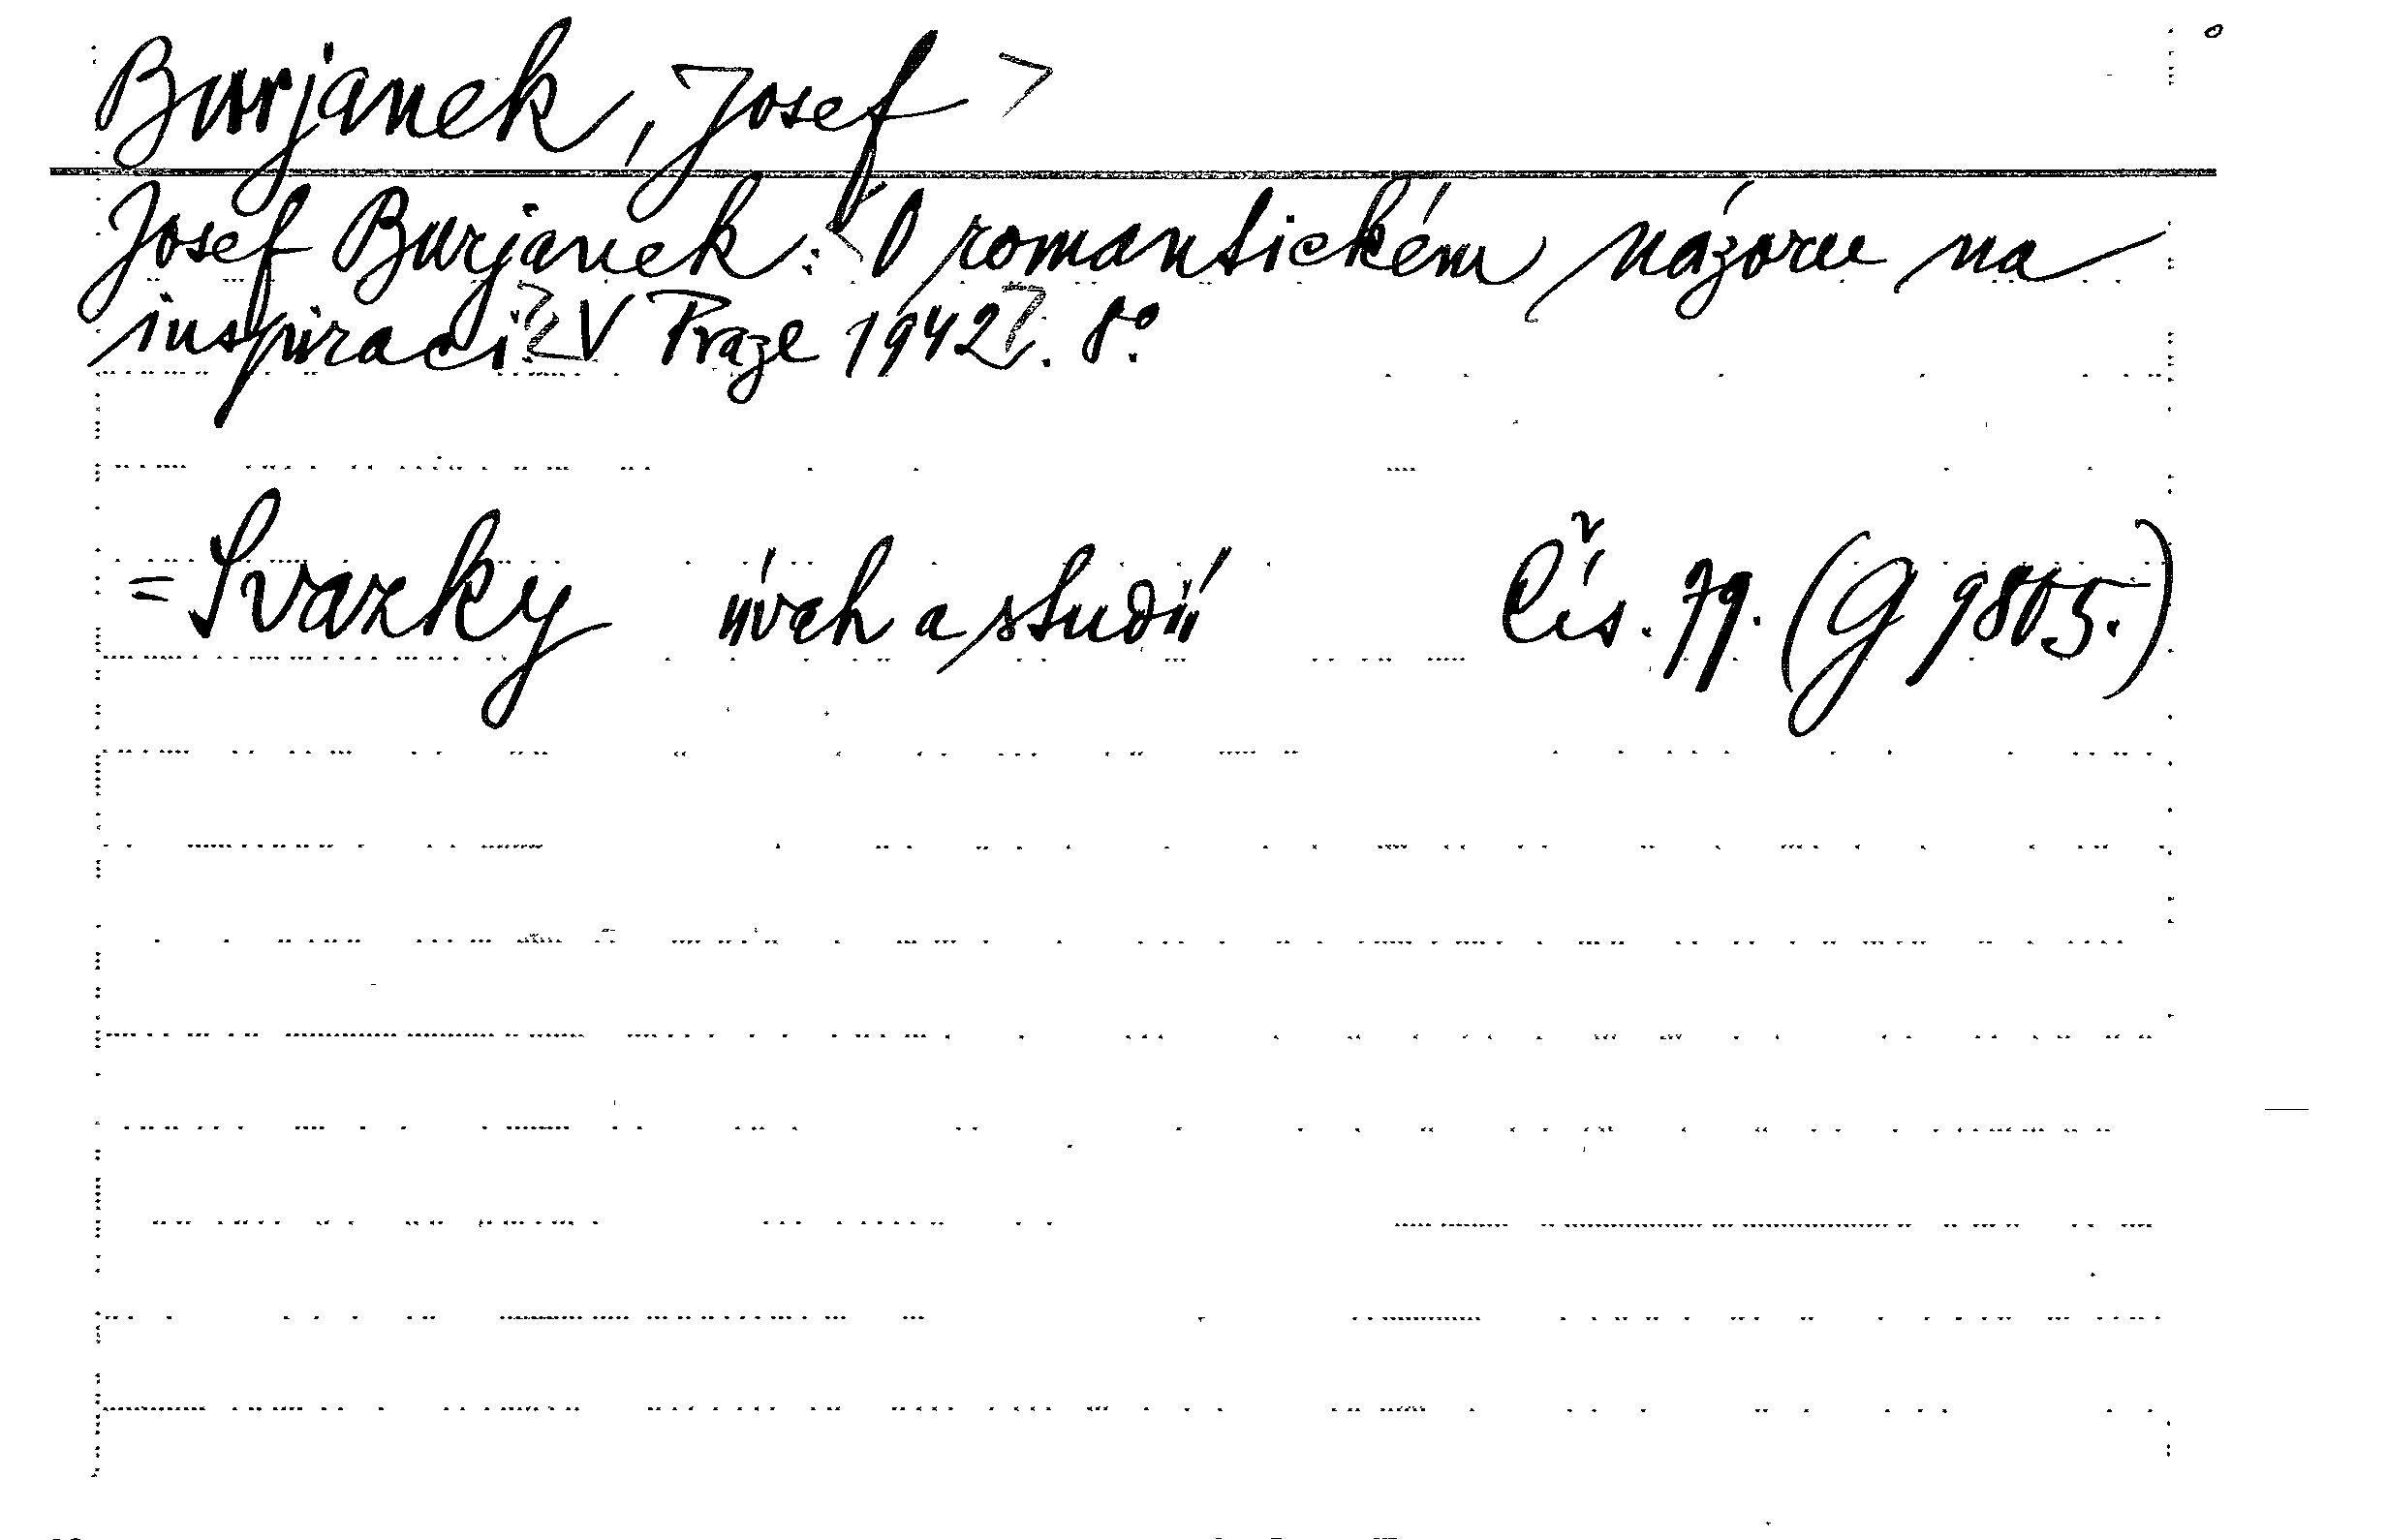 Burjanek, Josef
Josef Burjanek: O romantickém názoru na
inspiraci. V Praze 1942. 8°.
= Svazky úvah a studií Čís. 79. (G 9805.)